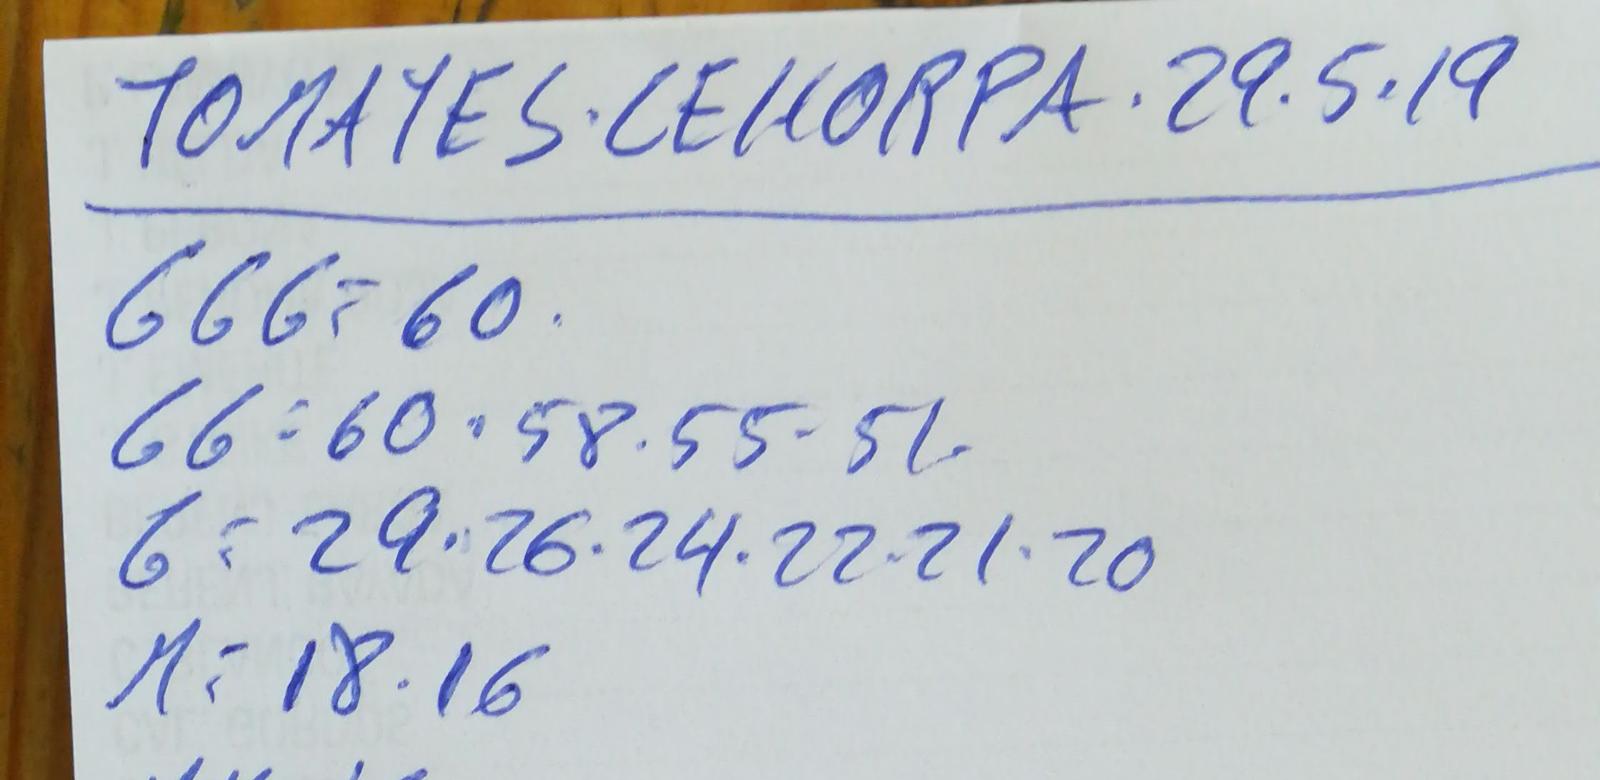 TOMATES·CEHORPA·29.5.19
GGG=60.
GG=60.58.55-51.
G=29.26.24.22.21.20
M=18.16